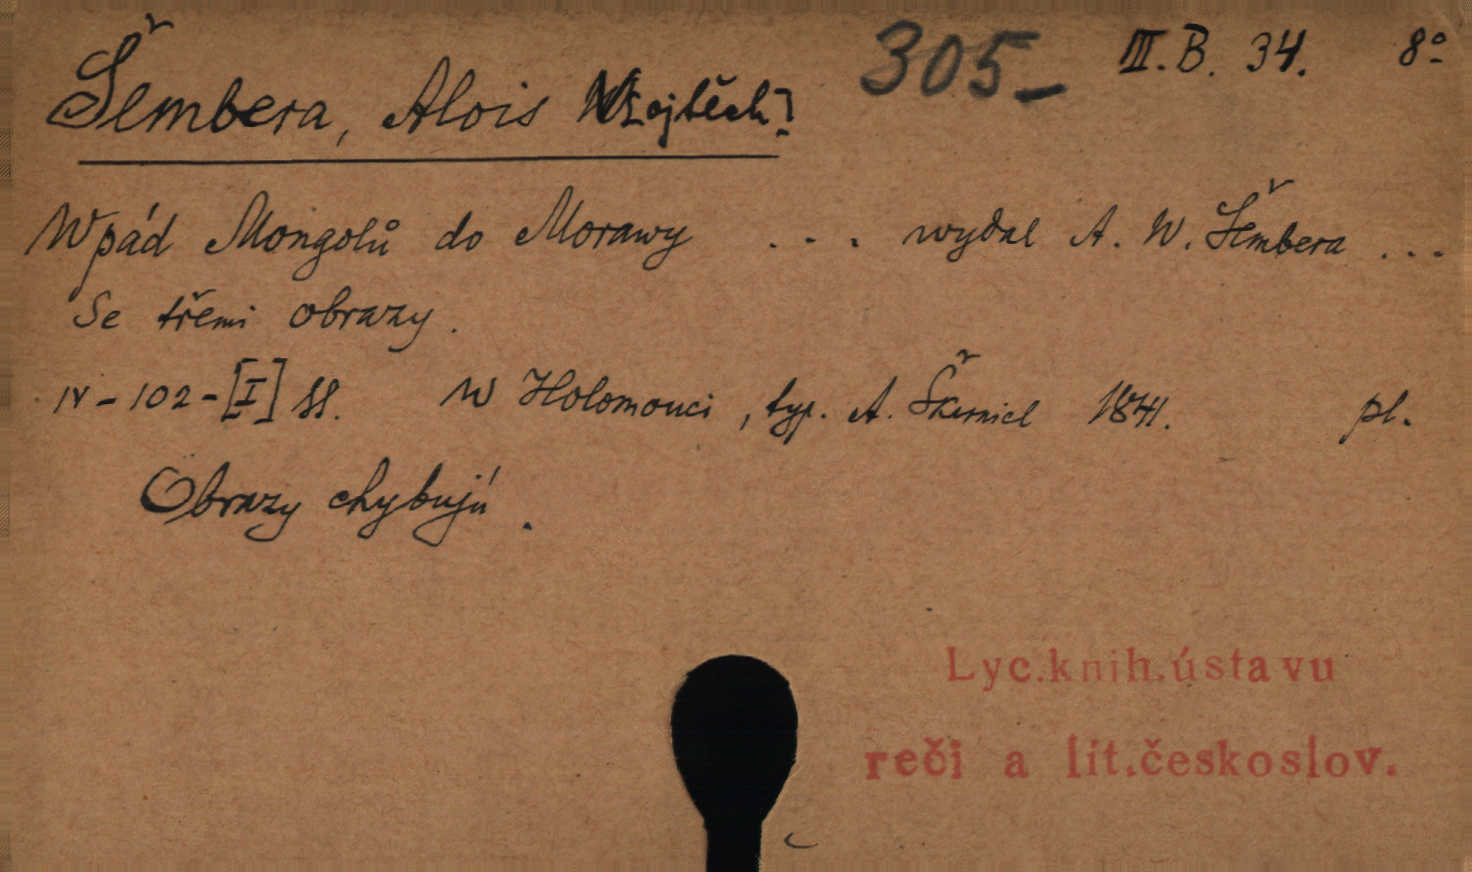 305- III.B. 34. 8°
Šembera, Alois W[ojtěch.]
Wpád Mongolů do Morawy . . . wydal A. W. Šembera ...
Se třemi obrazy.
IV - 102 - [I] ss. W Holomouci, typ. A. Škarnicl 1841. pl.
Obrazy chybujú.
Lyc.knih.ústavu
reči a lit.českoslov.